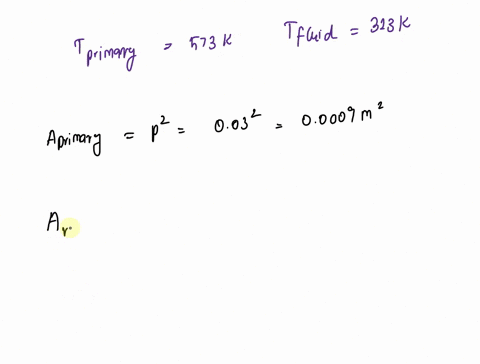 T primary = 573 K T fluid = 313 K
A primary = p² = 0.03² = 0.0009 m²
A